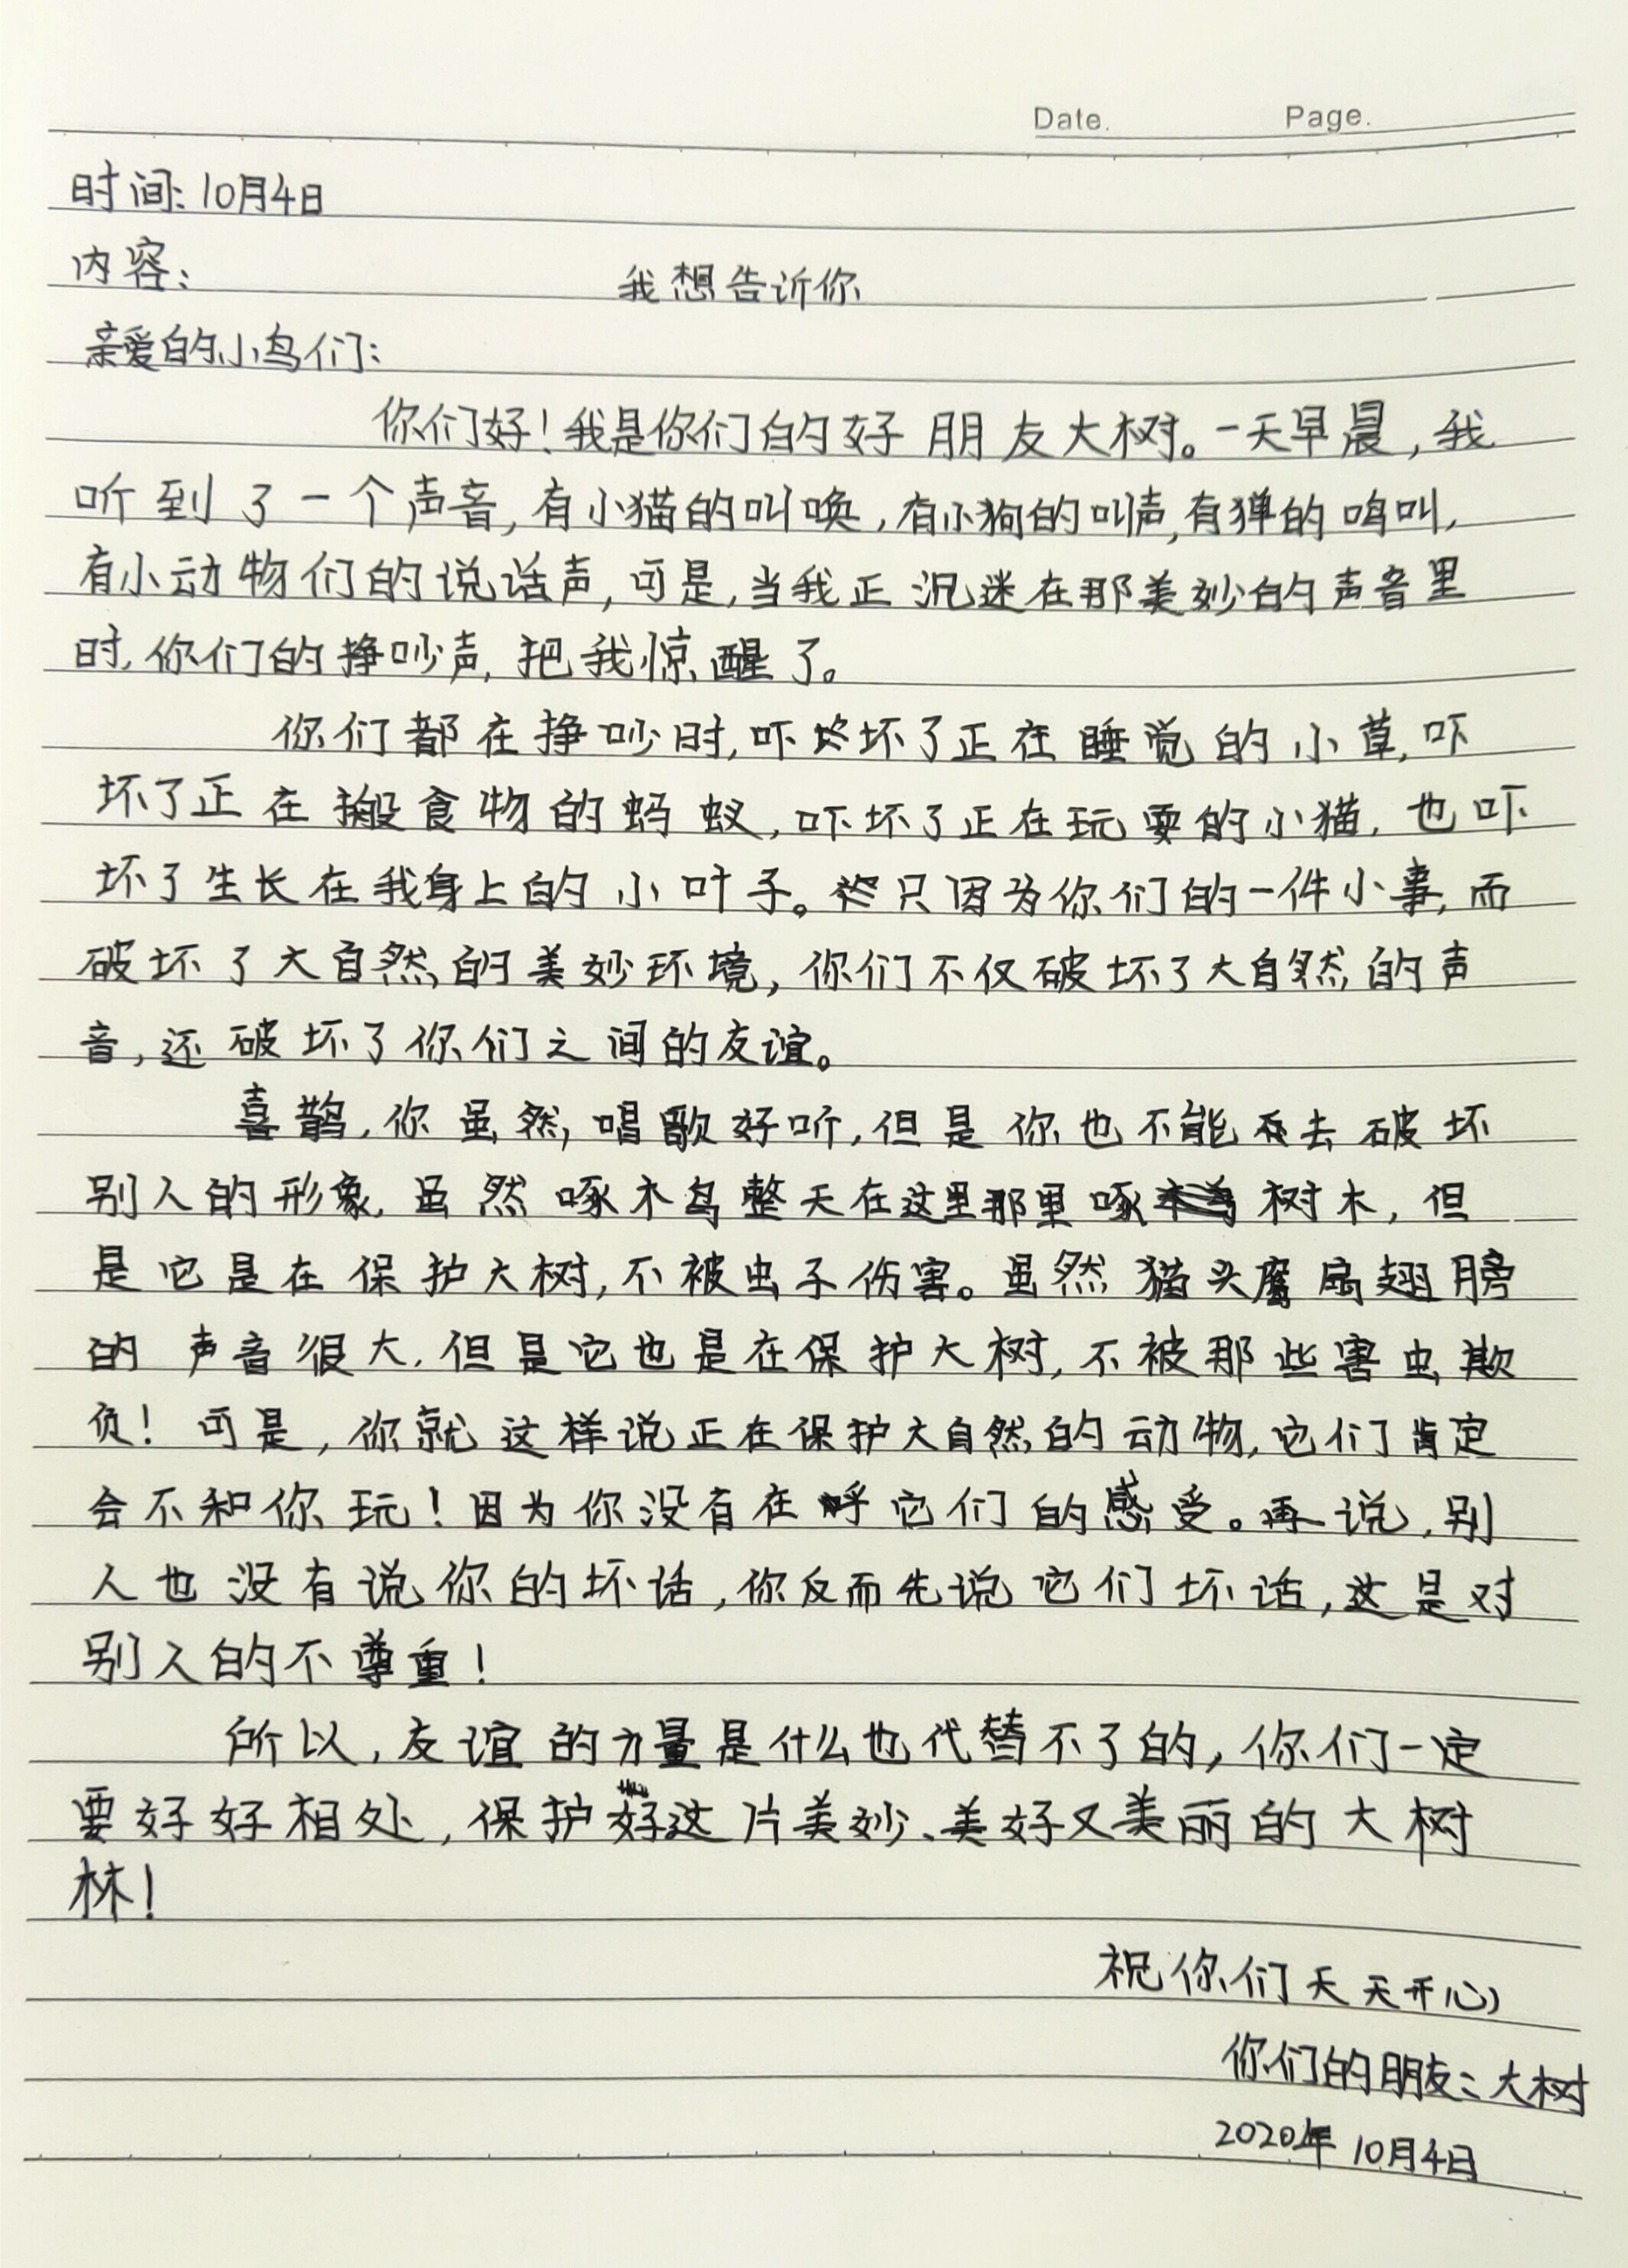 Date. Page.
时间:10月4日
内容: 我想告诉你
亲爱的小鸟们:
你们好!我是你们的好朋友大树。一天早晨,我
听到了一个声音,有小猫的叫唤,有小狗的叫声,有蝉的鸣叫,
有小动物们的说话声,可是,当我正沉迷在那美妙的声音里
时,你们的挣吵声,把我惊醒了。
你们都在挣吵时,吓坏了正在睡觉的小草,吓
坏了正在搬食物的蚂蚁,吓坏了正在玩耍的小猫,也吓
坏了生长在我身上的小叶子。只因为你们的一件小事,而
破坏了大自然的美妙环境,你们不仅破坏了大自然的声
音,还破坏了你们之间的友谊。
喜鹊,你虽然唱歌好听,但是你也不能去破坏
别人的形象,虽然啄木鸟整天在这里那里啄树木,但
是它是在保护大树,不被虫子伤害。虽然猫头鹰扇翅膀
的声音很大,但是它也是在保护大树,不被那些害虫欺
负!可是,你就这样说正在保护大自然的动物,它们肯定
会不和你玩!因为你没有在呼它们的感受。再说,别
人也没有说你的坏话,你反而先说它们坏话,这是对
别人的不尊重!
所以,友谊的力量是什么也代替不了的,你们一定
要好好相处,保护好这片美妙、美好又美丽的大树
林!
祝你们天天开心
你们的朋友:大树
2020年10月4日